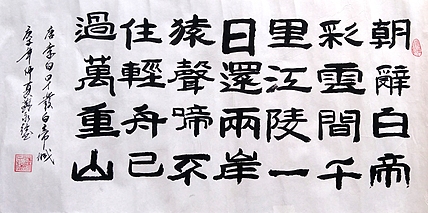 朝辭白帝
彩雲間千
里江陵一
日還兩岸
猿聲啼不
住輕舟已
過萬重山
唐李白早發白帝城
仲夏